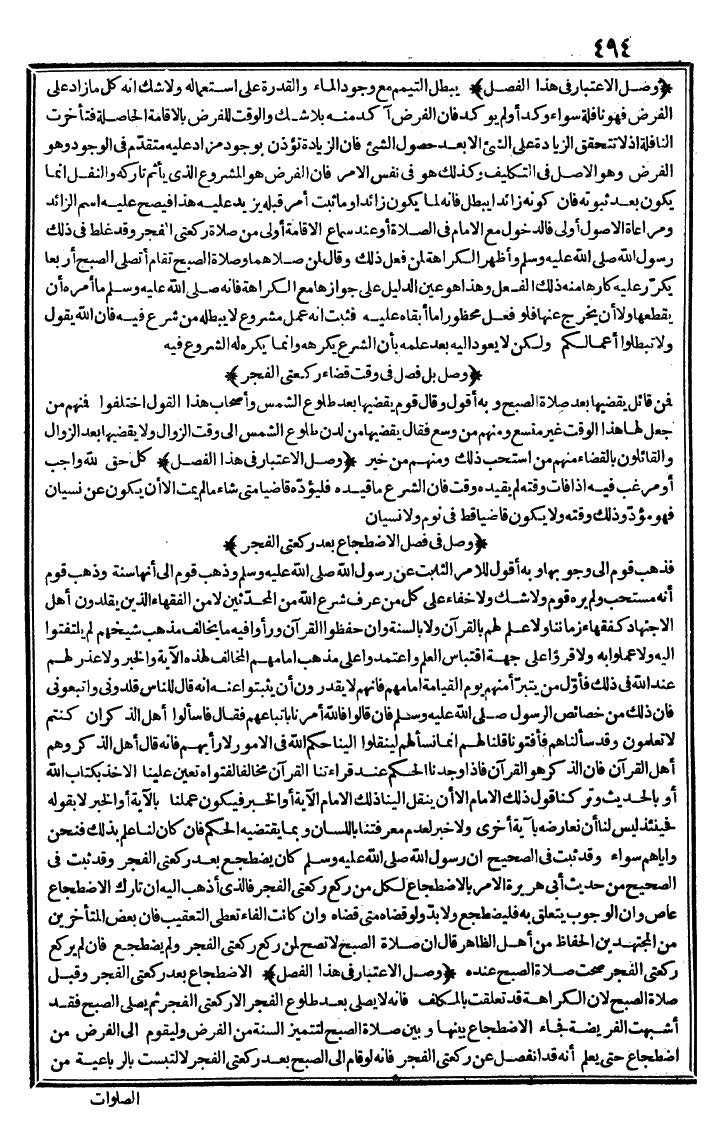 ٤٩٤
﴿وصل الاعتبار فى هذا الفصل﴾ يبطل التيمم مع وجود الماء والقدرة على استعماله ولا شك انه كل ما زاد على
الفرض فهو نافلة سواء وكد أو لم يوكد فان الفرض آكد منه بلا شك والوقت للفرض بالاقامة الحاصلة فتأخرت
النافلة اذ لا تتحقق الزيادة على الشئ الا بعد حصول الشئ فان الزيادة تؤذن بوجود مزاد عليه متقدّم فى الوجود وهو
الفرض وهو الاصل فى التكليف وكذلك هو فى نفس الامر فان الفرض هو المشروع الذى يأثم تاركه والنفل انما
يكون بعد ثبوته فان كونه زائدا يبطل فانه لما يكون زائدا وما ثبت أمر قبله يزيد عليه هذا فيصح عليه اسم الزائد
ومراعاة الاصول أولى فالدخول مع الامام فى الصلاة أو عند سماع الاقامة أولى من صلاة ركعتى الفجر وقد غلط فى ذلك
رسول الله صلى الله عليه وسلم وأظهر الكراهة لمن فعل ذلك وقال لمن صلاهما وصلاة الصبح تقام أتصلى الصبح أربعا
يكرّر عليه كارها منه ذلك الفعل وهذا هو عين الدليل على جوازها مع الكراهة فانه صلى الله عليه وسلم ما أمره أن
يقطعها ولا أن يخرج عنها فلو فعل محظورا ما أبقاه عليه فثبت انه عمل مشروع لا يبطله من شرع فيه فان الله يقول
ولا تبطلوا أعمالكم ولكن لا يعود اليه بعد علمه بأن الشرع يكرهه وانما يكره له الشروع فيه
﴿وصل بل فصل فى وقت قضاء ركعتى الفجر﴾
فمن قائل يقضيها بعد صلاة الصبح وبه أقول وقال قوم يقضيها بعد طلوع الشمس وأصحاب هذا القول اختلفوا فنهم من
جعل لها هذا الوقت غير متسع ومنهم من وسع فقال يقضيها من لدن طلوع الشمس الى وقت الزوال ولا يقضيها بعد الزوال
والقائلون بالقضاء منهم من استحب ذلك ومنهم من خير ﴿وصل الاعتبار فى هذا الفصل﴾ كل حق لله واجب
أو مرغب فيه اذا فات وقته لم يقيده وقت فان الشرع ما قيده فليؤدّه قاضيا متى شاء ما لم يمت الا أن يكون عن نسيان
فهو مؤدّ وذلك وقته ولا يكون قاضيا قط فى نوم ولا نسيان
﴿وصل فى فصل الاضطجاع بعد ركعتى الفجر﴾
فذهب قوم الى وجوبها وبه أقول للامر الثابت عن رسول الله صلى الله عليه وسلم وذهب قوم الى أنها سنة وذهب قوم
أنه مستحب ولم يره قوم ولا شك ولا خفاء على كل من عرف شرع الله من المحدّثين لا من الفقهاء الذين يقلدون أهل
الاجتهاد كفقهاء زماننا ولا علم لهم بالقرآن ولا بالسنة وان حفظوا القرآن ورأوا فيه ما يخالف مذهب شيخهم لم يلتفتوا
اليه ولا عملوا به ولا قرؤا على جهة اقتباس العلم واعتمدوا على مذهب امامهم المخالف لهذه الآية والخبر ولا عذر لهم
عند الله فى ذلك فأوّل من يتبرّأ منهم يوم القيامة امامهم فانهم لا يقدرون أن يثبتوا عنه انه قال للناس قلدونى واتبعونى
فان ذلك من خصائص الرسول صلى الله عليه وسلم فان قالوا فالله أمرنا باتباعهم فقال فاسألوا أهل الذكر ان كنتم
لا تعلمون وقد سألناهم فأفتونا قلنا لهم انما نسألهم لينقلوا الينا حكم الله فى الامور لا رأيهم فانه قال أهل الذكر وهم
أهل القرآن فان الذكر هو القرآن فاذا وجدنا الحكم عند قراءتنا القرآن مخالفا لفتواه تعين علينا الاخذ بكتاب الله
أو بالحديث وتركنا قول ذلك الامام الا أن ينقل الينا ذلك الامام الآية أو الخبر فيكون عملنا بالآية أو الخبر لا بقوله
فحينئذ ليس لنا أن نعارضه بآية أخرى ولا خبر لعدم معرفتنا باللسان وبما يقتضيه الحكم فان كان لنا علم بذلك فنحن
واياهم سواء وقد ثبت فى الصحيح ان رسول الله صلى الله عليه وسلم كان يضطجع بعد ركعتى الفجر وقد ثبت فى
الصحيح من حديث أبى هريرة الامر بالاضطجاع لكل من ركع ركعتى الفجر فالذى أذهب اليه ان تارك الاضطجاع
عاص وان الوجوب يتعلق به فليضطجع ولا بدّ ولو قضاه متى قضاه وان كانت الفاء تعطى التعقيب فان بعض المتأخرين
من المجتهدين الحفاظ من أهل الظاهر قال ان صلاة الصبح لا تصح لمن ركع ركعتى الفجر ولم يضطجع فان لم يركع
ركعتى الفجر صحت صلاة الصبح عنده ﴿وصل الاعتبار فى هذا الفصل﴾ الاضطجاع بعد ركعتى الفجر وقبل
صلاة الصبح لان الكراهة قد تعلقت بالمكلف فانه لا يصلى بعد طلوع الفجر الا ركعتى الفجر ثم يصلى الصبح فقد
أشبهت الفريضة فجاء الاضطجاع بينها وبين صلاة الصبح لتتميز السنة من الفرض وليقوم الى الفرض من
اضطجاع حتى يعلم أنه قد انفصل عن ركعتى الفجر فانه لو قام الى الصبح بعد ركعتى الفجر لالتبست بالرباعية من
الصلوات